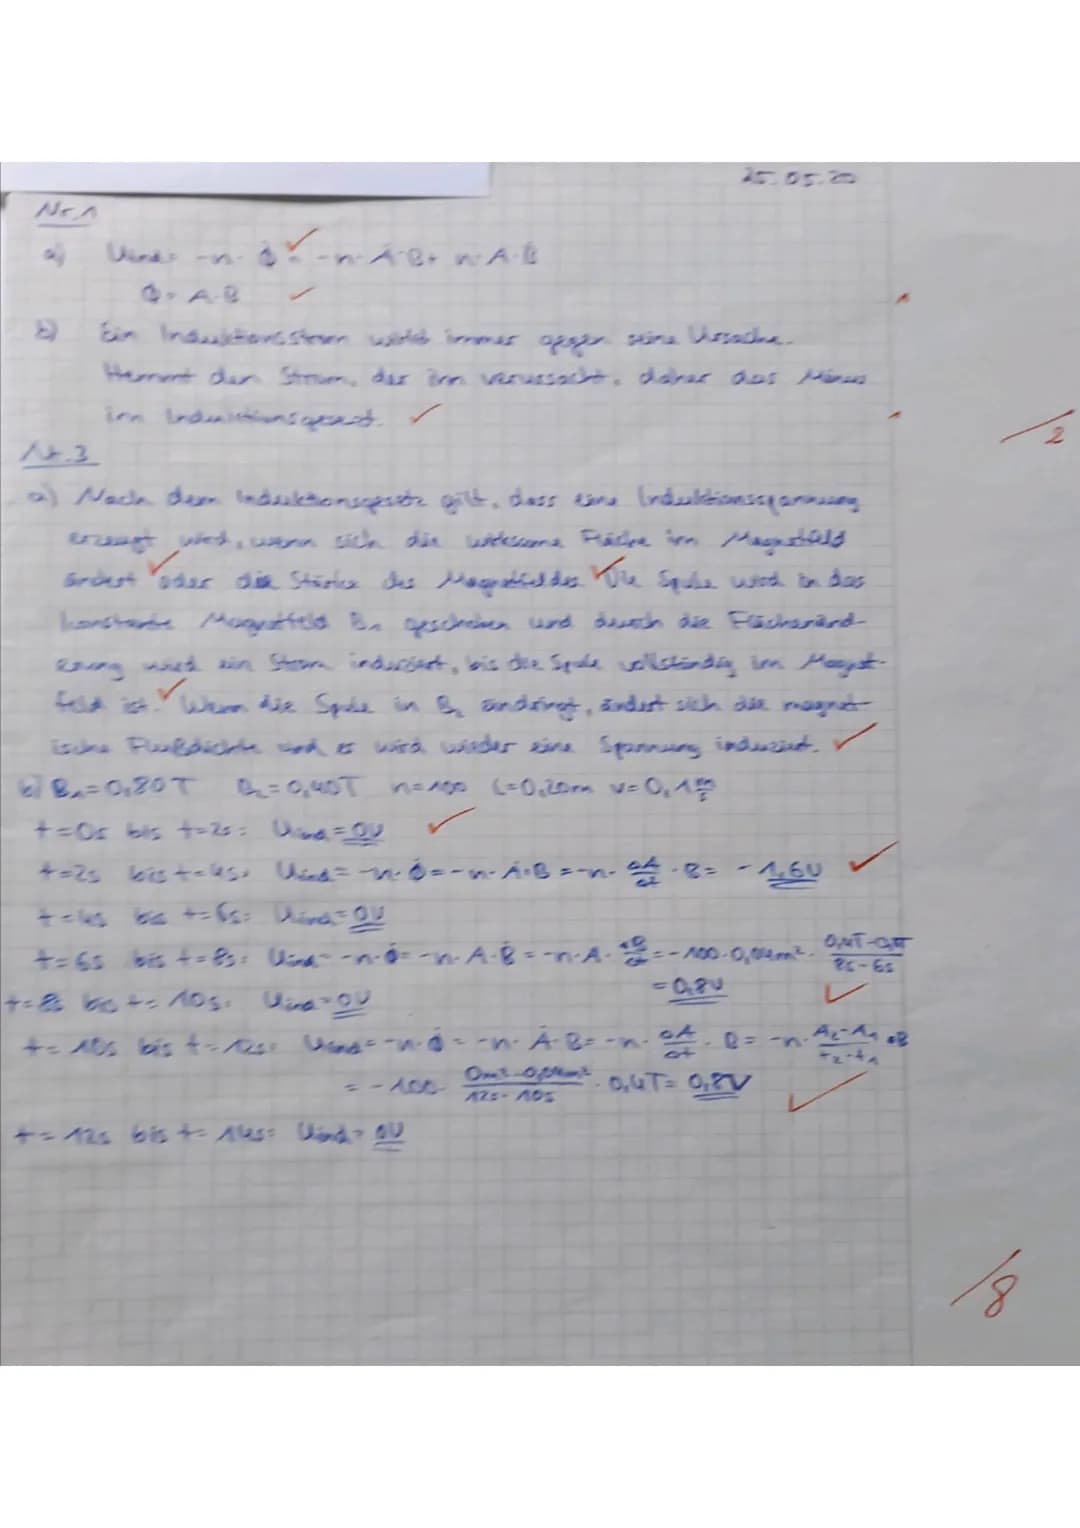 25.05.20
Nr. 1
a) Uind = -n · Φ̇ = -n · Ȧ · B + n · A · Ḃ
Φ = A · B
b) Ein Induktionsstrom wirkt immer gegen seine Ursache.
Hemmt den Strom, der ihn verursacht, daher das Minus
im Induktionsgesetz.
/2
Nr. 3
a) Nach dem Induktionsgesetz gilt, dass eine Induktionsspannung
erzeugt wird, wenn sich die wirksame Fläche im Magnetfeld
ändert oder die Stärke des Magnetfeldes. Die Spule wird in das
konstante Magnetfeld B₁ geschoben und durch die Flächenänd-
erung wird ein Strom induziert, bis die Spule vollständig im Magnet-
feld ist. Wenn die Spule in B₂ eindringt, ändert sich die magnet-
ische Flußdichte und es wird wieder eine Spannung induziert.
b) B₁ = 0,80T B₂ = 0,40T n = 100 l = 0,20m v = 0,1 m/s
t = 0s bis t = 2s: Uind = 0V
t = 2s bis t = 4s: Uind = -n · Φ̇ = -n · Ȧ · B = -n · ΔA/Δt · B = -1,6V
t = 4s bis t = 6s: Uind = 0V
t = 6s bis t = 8s: Uind = -n · Φ̇ = -n · A · Ḃ = -n · A · ΔB/Δt = -100 · 0,04m² · 0,4T-0,8T/8s-6s
= 0,8V
t = 8s bis t = 10s: Uind = 0V
t = 10s bis t = 12s: Uind = -n · Φ̇ = -n · Ȧ · B = -n · ΔA/Δt · B = -n · A₂-A₁/t₂-t₁ · B
= -100 · 0m²-0,04m²/12s-10s · 0,4T = 0,8V
t = 12s bis t = 14s: Uind = 0V
/8